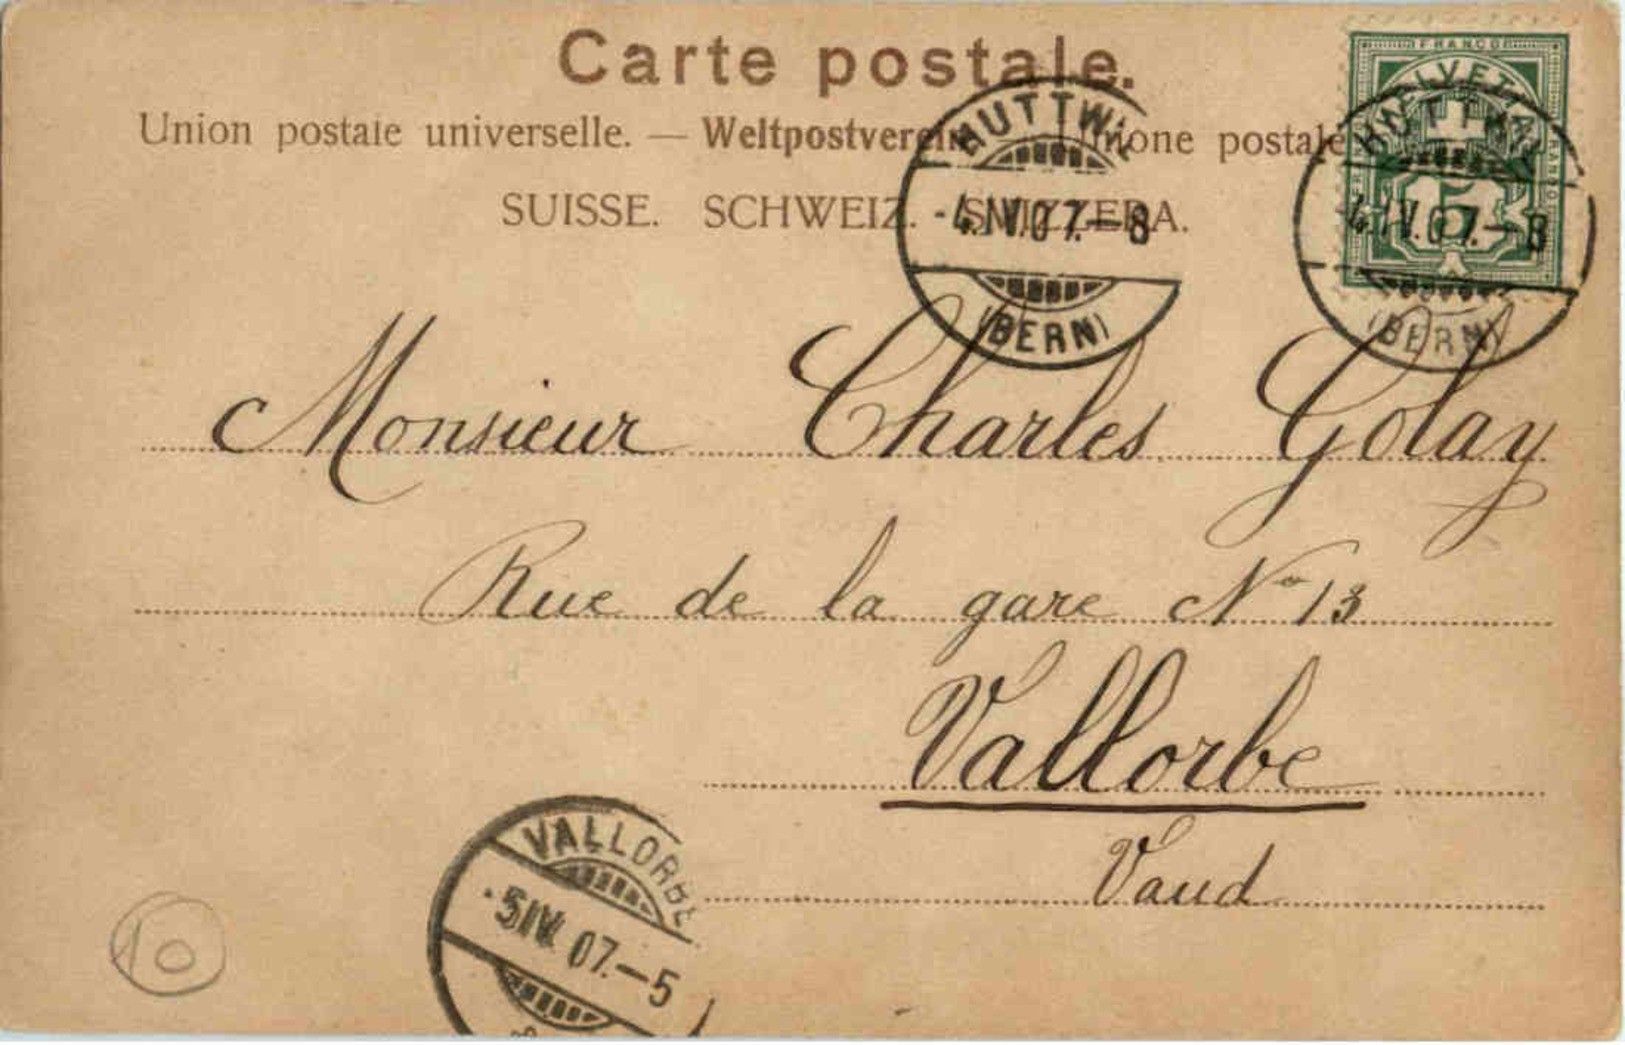 Carte postale.
Union postale universelle. — Weltpostverein. — Unione postale
SUISSE. SCHWEIZ. SVIZZERA.
FRANCO
HELVETIA
FRANCO
5
HUTTWIL
-4.IV.07.—8
(BERN)
HUTTWIL
4.IV.07.—8
(BERN)
Monsieur Charles Golay
Rue de la gare No 13
Vallorbe
Vaud
VALLORBE
·5.IV.07.—5
10